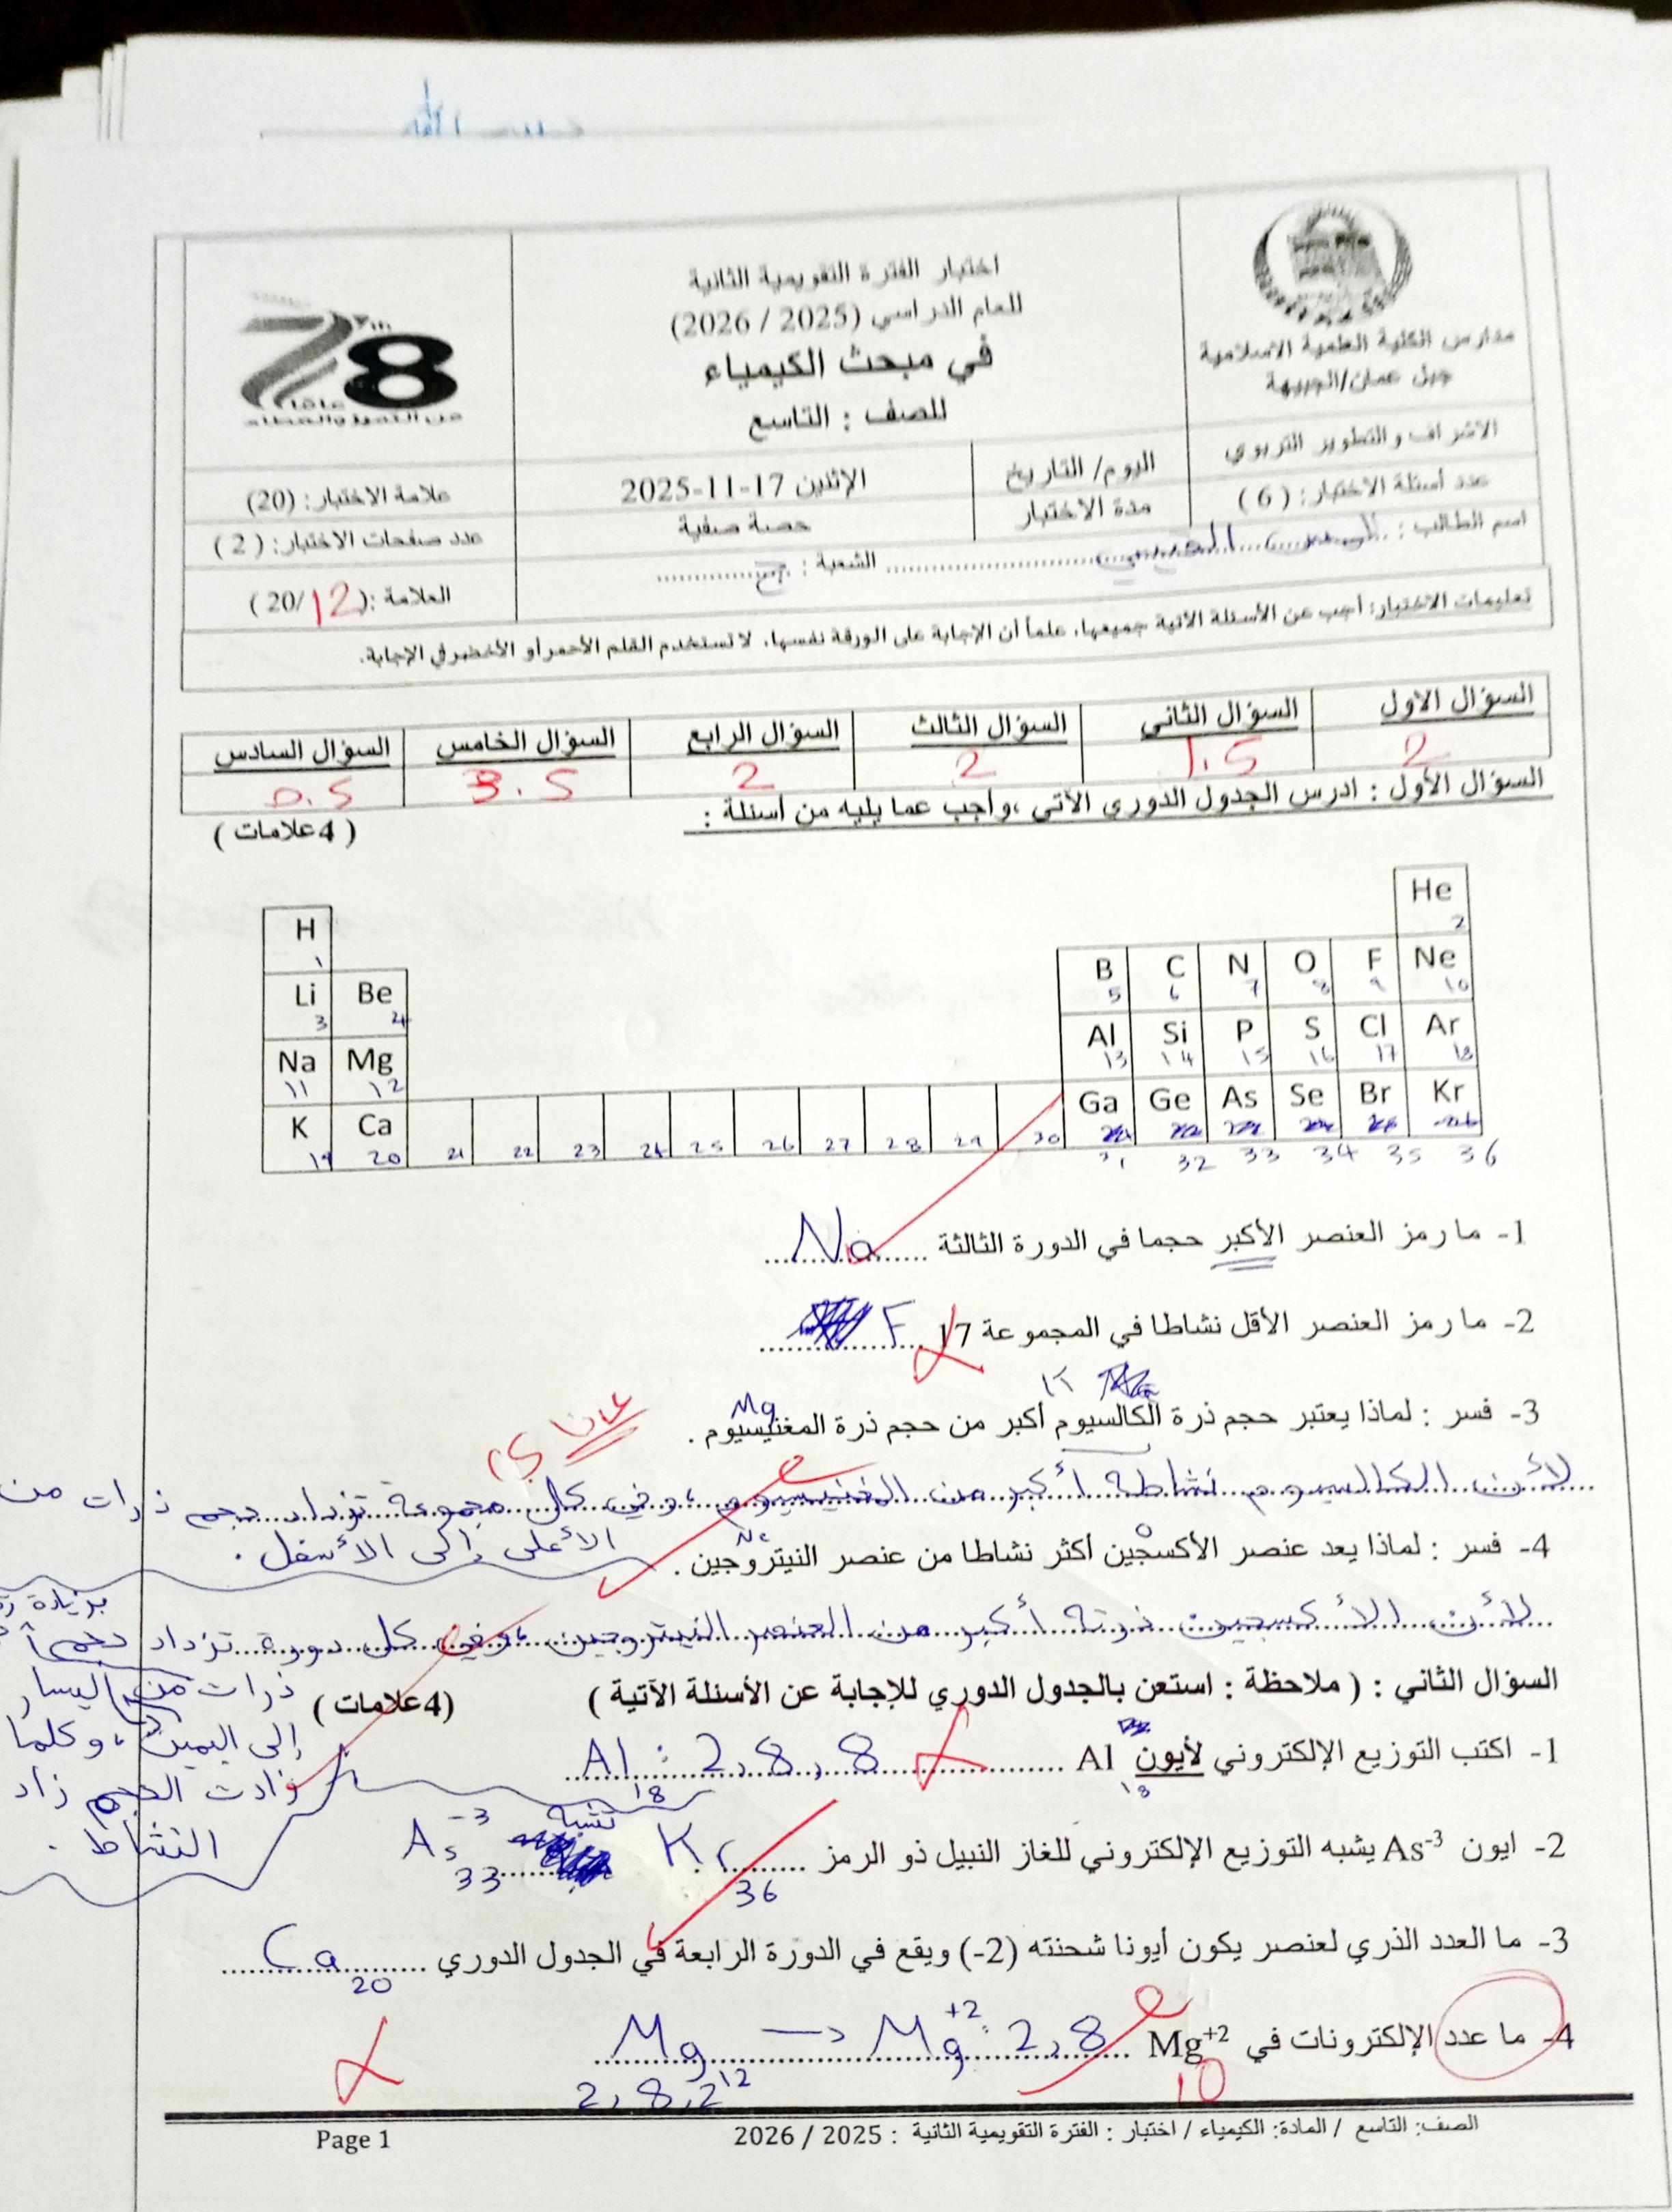 اختبار الفترة التقويمية الثانية
للعام الدراسي (2025 / 2026)
في مبحث الكيمياء
للصف : التاسع
مدارس الكلية العلمية الاسلامية
جبل عمان/الجبيهة
78
عامًا
من التميز والعطاء
الاشراف والتطوير التربوي
اليوم/ التاريخ
الإثنين 17-11-2025
علامة الاختبار: (20)
عدد أسئلة الاختبار: ( 6 )
مدة الاختبار
حصة صفية
عدد صفحات الاختبار: ( 2 )
اسم الطالب :
الشعبة :
العلامة :( 12/20 )
تعليمات الاختبار: أجب عن الأسئلة الآتية جميعها، علماً أن الإجابة على الورقة نفسها، لا تستخدم القلم الأحمر او الأخضر في الإجابة.
السؤال الأول السؤال الثاني السؤال الثالث السؤال الرابع السؤال الخامس السؤال السادس
2 1.5 2 2 3.5 0.5
السؤال الأول : ادرس الجدول الدوري الآتي ،وأجب عما يليه من أسئلة :
( 4 علامات )
H 1 He 2
Li 3 Be 4 B 5 C 6 N 7 O 8 F 9 Ne 10
Na 11 Mg 12 Al 13 Si 14 P 15 S 16 Cl 17 Ar 18
K 19 Ca 20 21 22 23 24 25 26 27 28 29 30 Ga 31 Ge 32 As 33 Se 34 Br 35 Kr 36
1- ما رمز العنصر الأكبر حجما في الدورة الثالثة Na
2- ما رمز العنصر الأقل نشاطا في المجموعة 17 F
Mg
3- فسر : لماذا يعتبر حجم ذرة الكالسيوم أكبر من حجم ذرة المغنيسيوم .
لأن الكالسيوم نشاطه أكبر من المغنيسيوم ، وفي كل مجموعة تزداد حجم ذرات من
الأعلى إلى الأسفل .
4- فسر : لماذا يعد عنصر الأكسجين أكثر نشاطا من عنصر النيتروجين .
لأن الأكسجين ذرته أكبر من العنصر النيتروجين ، وفي كل دورة تزداد حجم
بزيادة
ذرات من اليسار
إلى اليمين ، وكلما
زادت الحجم زاد
النشاط .
السؤال الثاني : ( ملاحظة : استعن بالجدول الدوري للإجابة عن الأسئلة الآتية )
(4 علامات )
1- اكتب التوزيع الإلكتروني لأيون Al Al : 2,8,8
13
18
2- ايون As-3 يشبه التوزيع الإلكتروني للغاز النبيل ذو الرمز Kr 36 تشبه As-3 33
3- ما العدد الذري لعنصر يكون أيونا شحنته (2-) ويقع في الدورة الرابعة في الجدول الدوري Ca 20
4- ما عدد الإلكترونات في Mg+2 Mg → Mg+2 : 2,8
10
2,8,2 12
الصف: التاسع / المادة: الكيمياء / اختبار : الفترة التقويمية الثانية : 2025 / 2026
Page 1